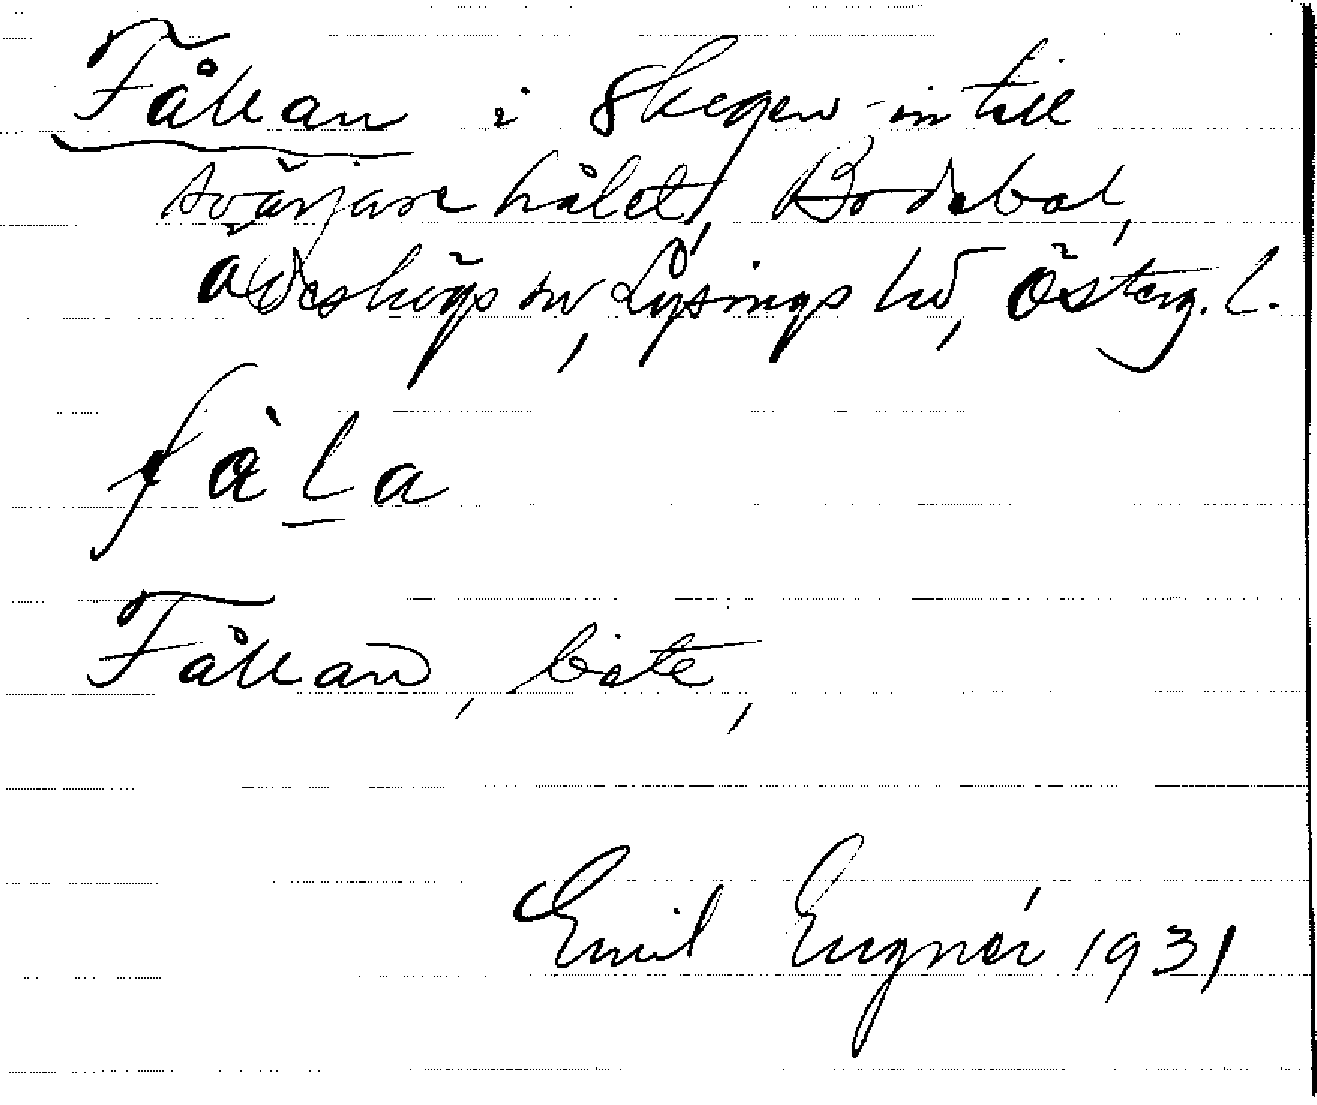 Fållan i Skogen intill
svärjarehålet, Bodabol,
Ödeshögs sn, Lysings hd, Österg. l.
fåla
Fållan, bäte,
Emil Engnér 1931